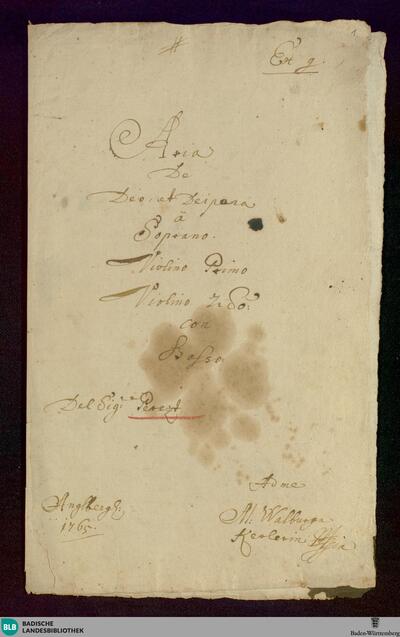 #
Ex g.
1
Aria
De
Deo et Deipara
à
Soprano.
Violino Primo
Violino 2do:
con
Basso.
Del Sigre Perezt
Adme
Anglbergh:
1765.
M: Walburga
Kerlerin
BLB BADISCHE
LANDESBIBLIOTHEK
Baden-Württemberg